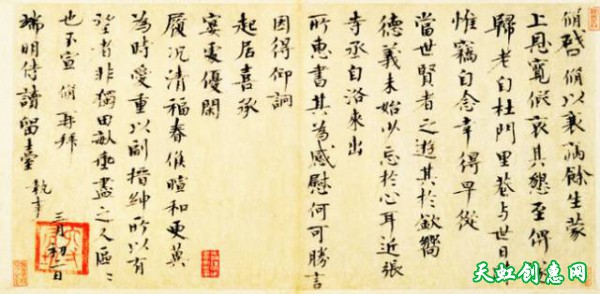 脩啓脩以衰病餘生蒙
上恩寬假哀其懇至俾遂
歸老自杜門里巷与世日疎
惟竊自念幸得早從
當世賢者之遊其於欽嚮
德義未始少忘於心耳近張
寺丞自洛來出
所惠書其為感慰何可勝言
因得仰詢
起居喜承
宴處優閑
履況清福春候暄和更冀
為時愛重以副搢紳所以有
望者非獨田畝垂盡之人區〻
也不宣 脩再拜
端明侍讀留臺 執事
三月初二日
天虹创意网